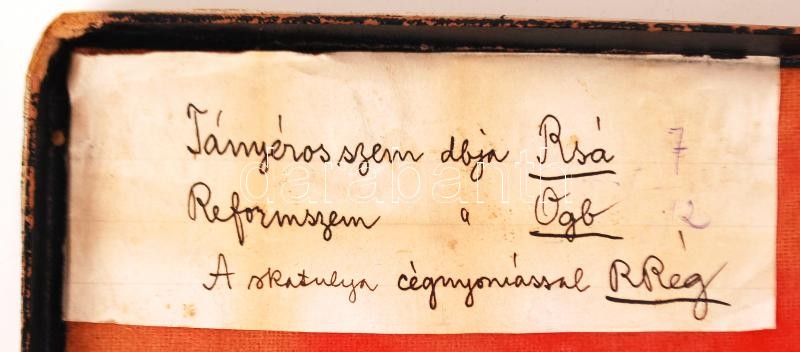 Tányéros szem dbja Rsá 7
Reformszem " Ogb 2
A skatulya cégnyomással RRég
darabanth